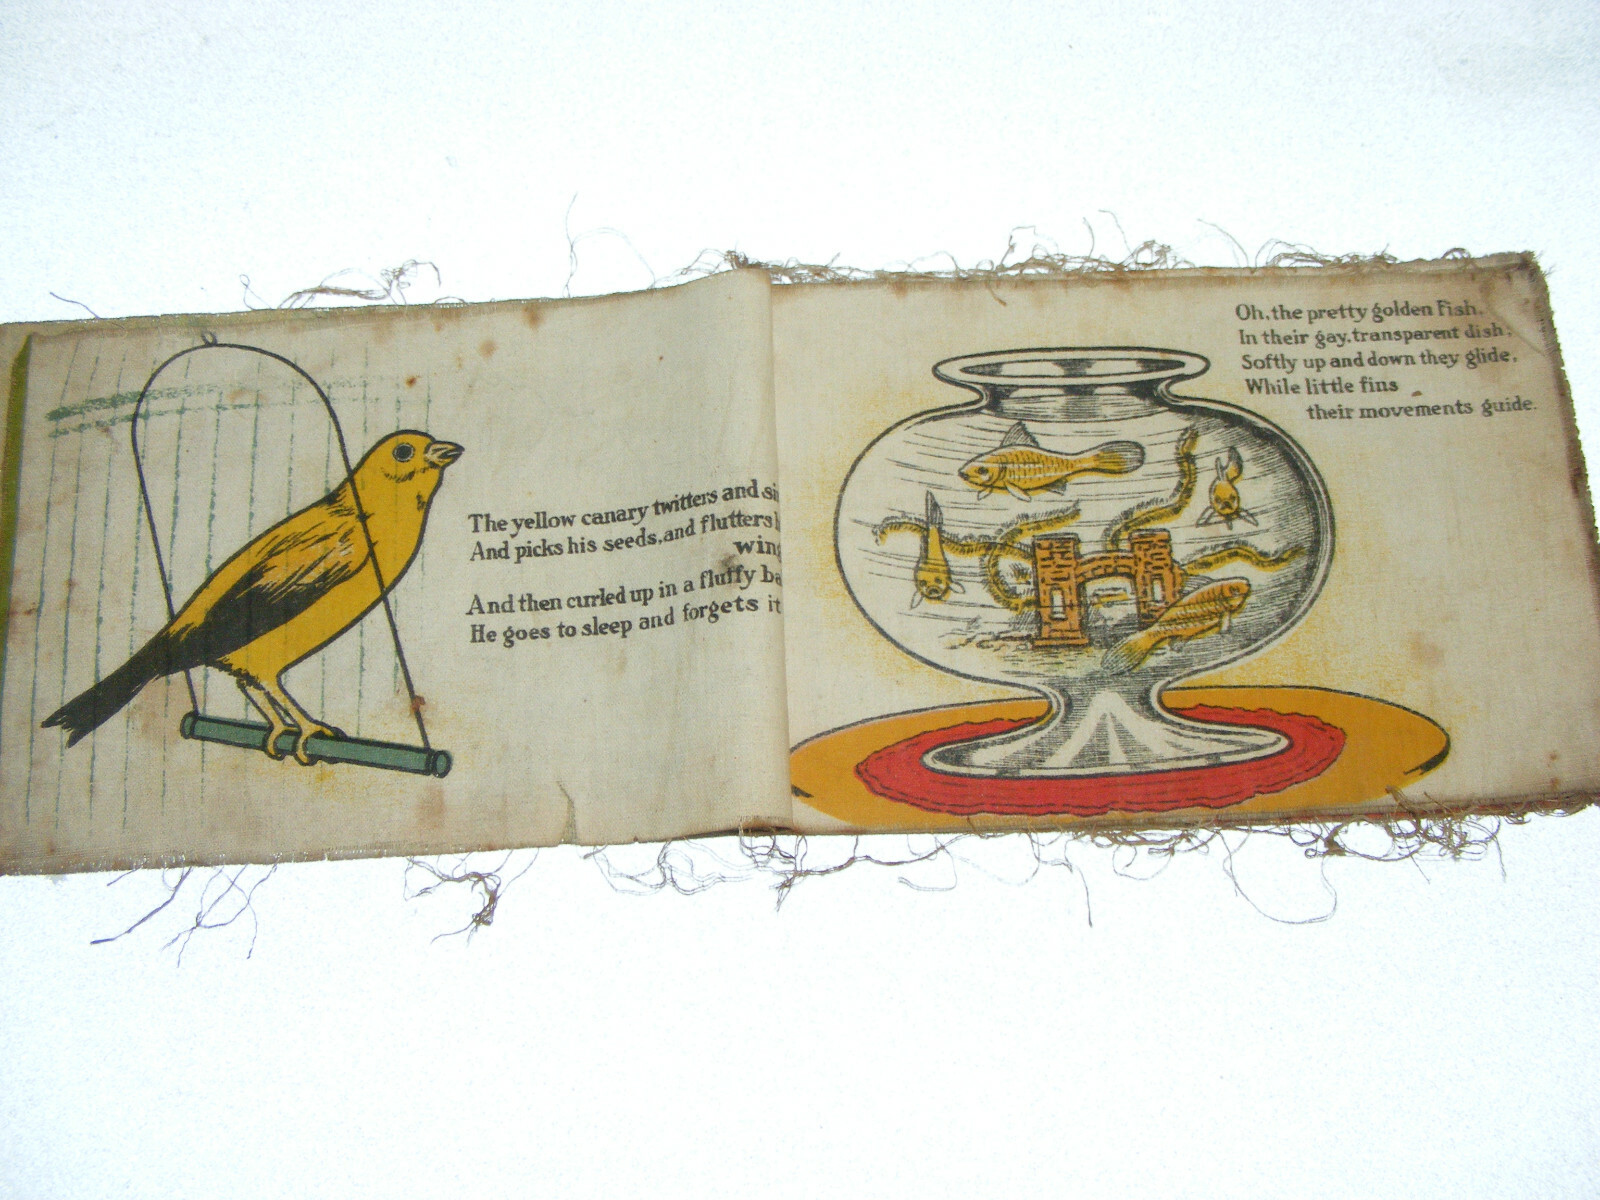 The yellow canary twitters and
And picks his seeds, and flutters
And then curled up in a fluffy
He goes to sleep and forgets it
Oh, the pretty golden Fish,
In their gay, transparent dish;
Softly up and down they glide,
While little fins
their movements guide.